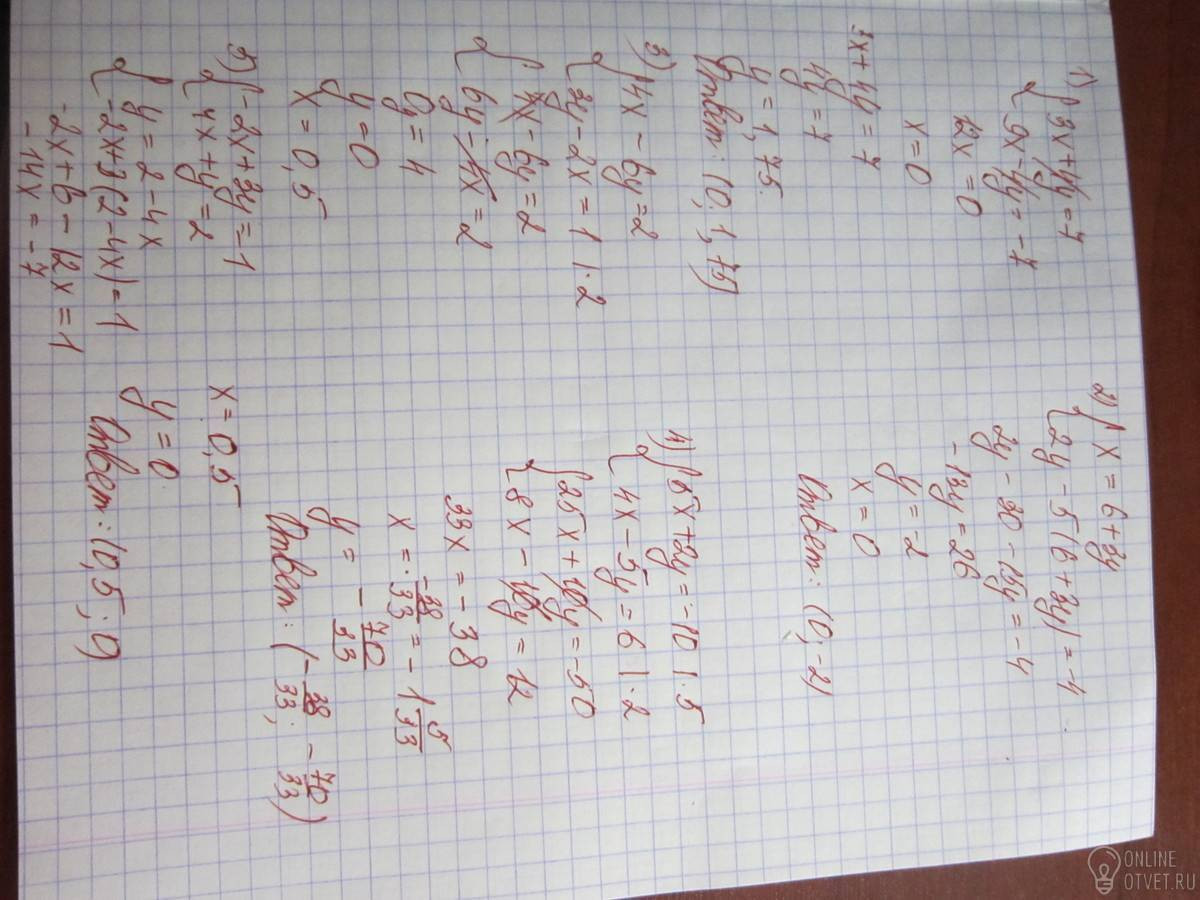 1) { 3x + 4y = 7
9x - 4y = -7
12x = 0
x = 0
3x + 4y = 7
4y = 7
y = 1,75.
Ответ: (0; 1,75)
3) { 4x - 6y = 2
3y - 2x = 1 |·2
{ 4x - 6y = 2
6y - 4x = 2
0y = 4
y = 0
x = 0,5
5) { -2x + 3y = -1
4x + y = 2
{ y = 2 - 4x
-2x + 3(2 - 4x) = 1
-2x + 6 - 12x = 1
-14x = -7
2) { x = 6 + 3y
2y - 5(6 + 3y) = -4
2y - 30 - 15y = -4
-13y = 26
y = -2
x = 0
Ответ: (0; -2)
4) { 5x + 2y = -10 |·5
4x - 5y = 6 |·2
{ 25x + 10y = -50
8x - 10y = 12
33x = -38
x = -38/33 = -1 5/33
y = -70/33
Ответ: (-38/33; -70/33)
x = 0,5
y = 0
Ответ: (0,5; 0)
ONLINE
OTVET.RU